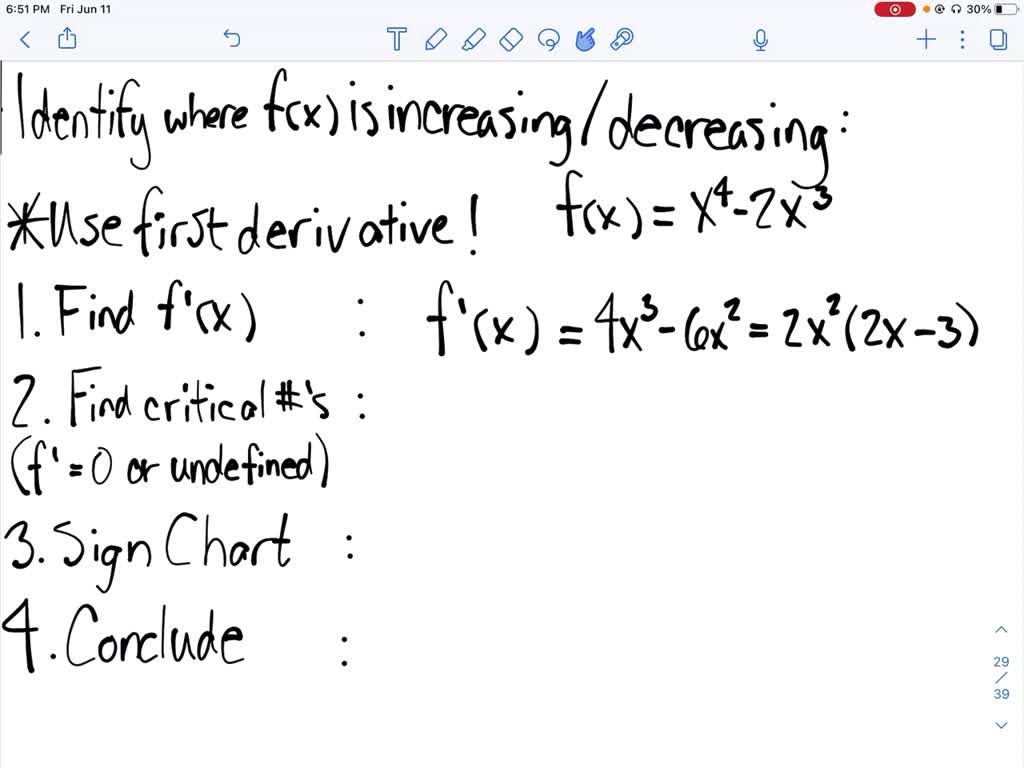 6:51 PM Fri Jun 11
30%
Identify where f(x) is increasing/decreasing:
*Use first derivative! f(x) = x⁴-2x³
1. Find f'(x) : f'(x) = 4x³-6x² = 2x²(2x-3)
2. Find critical #'s :
(f' = 0 or undefined)
3. Sign Chart :
4. Conclude :
29
/
39